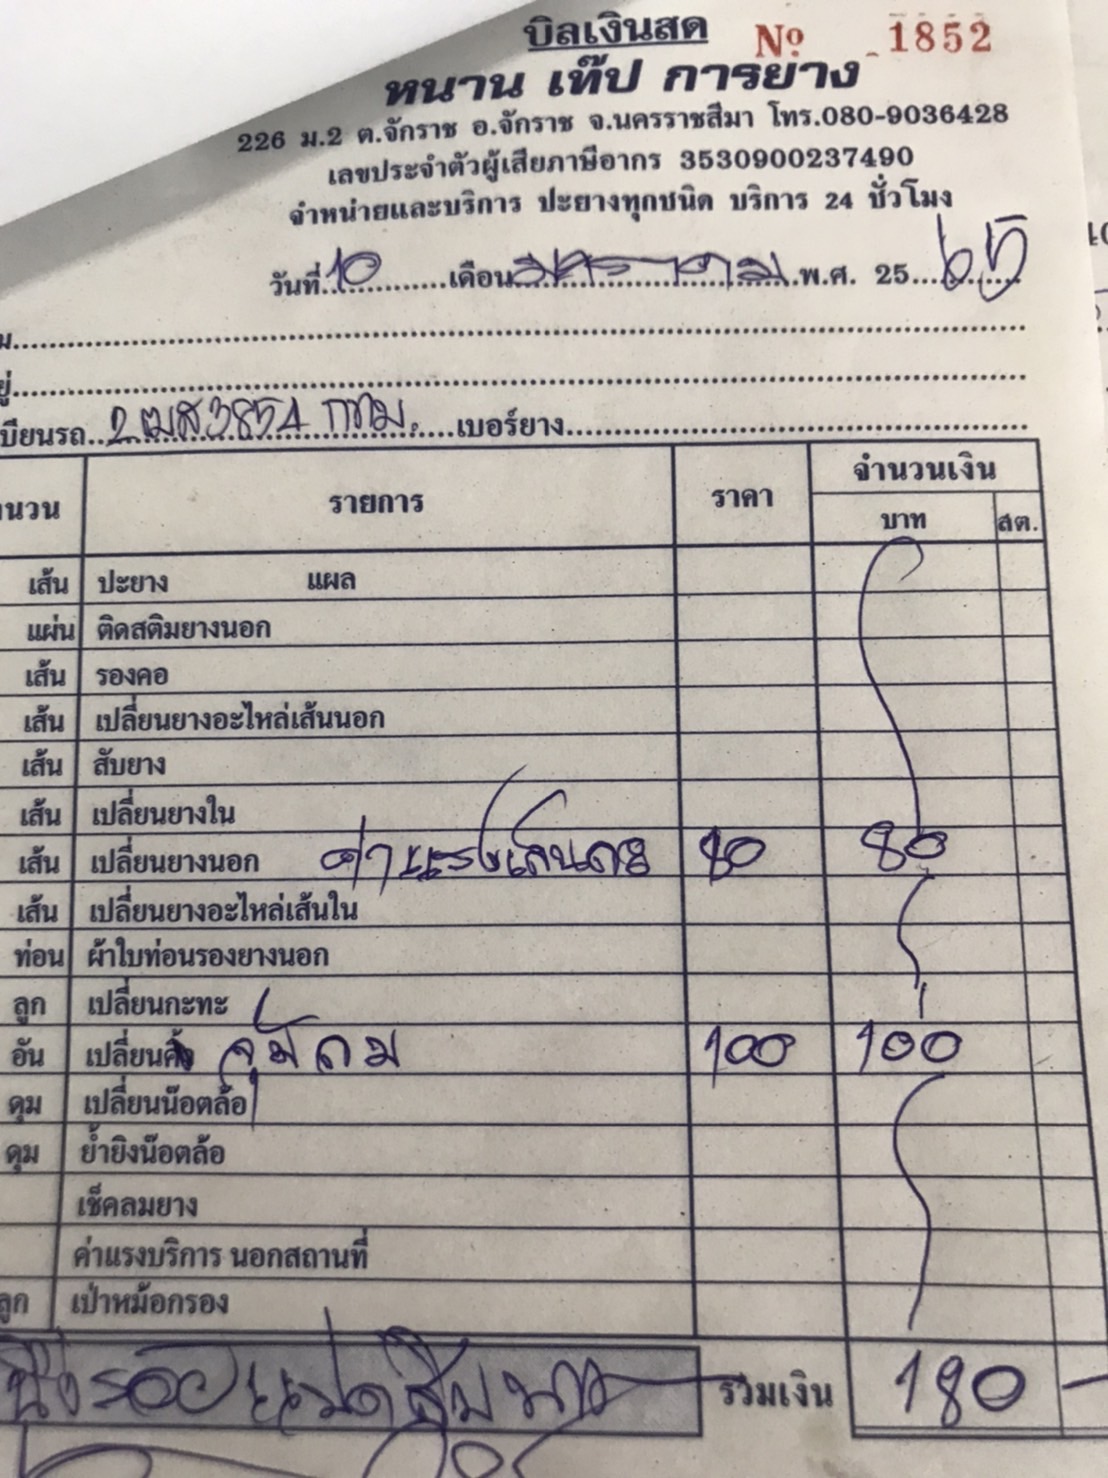 บิลเงินสด Nº 1852
หนาน เท๊ป การยาง
226 ม.2 ต.จักราช อ.จักราช จ.นครราชสีมา โทร.080-9036428
เลขประจำตัวผู้เสียภาษีอากร 3530900237490
จำหน่ายและบริการ ปะยางทุกชนิด บริการ 24 ชั่วโมง
วันที่ 10 เดือน พ.ศ. 25 65
บียนรถ 2ฒส3854 กทม. เบอร์ยาง
นวน รายการ ราคา จำนวนเงิน
บาท สต.
เส้น ปะยาง แผล
แผ่น ติดสติมยางนอก
เส้น รองคอ
เส้น เปลี่ยนยางอะไหล่เส้นนอก
เส้น สับยาง
เส้น เปลี่ยนยางใน
เส้น เปลี่ยนยางนอก ค่าแรง 80 80
เส้น เปลี่ยนยางอะไหล่เส้นใน
ท่อน ผ้าใบท่อนรองยางนอก
ลูก เปลี่ยนกะทะ
อัน เปลี่ยน จุ๊บลม 100 100
ดุม เปลี่ยนน๊อตล้อ
ดุม ย้ำยิงน๊อตล้อ
เช็คลมยาง
ค่าแรงบริการ นอกสถานที่
ลูก เป่าหม้อกรอง
หนึ่งร้อยแปดสิบบาท รวมเงิน 180 -